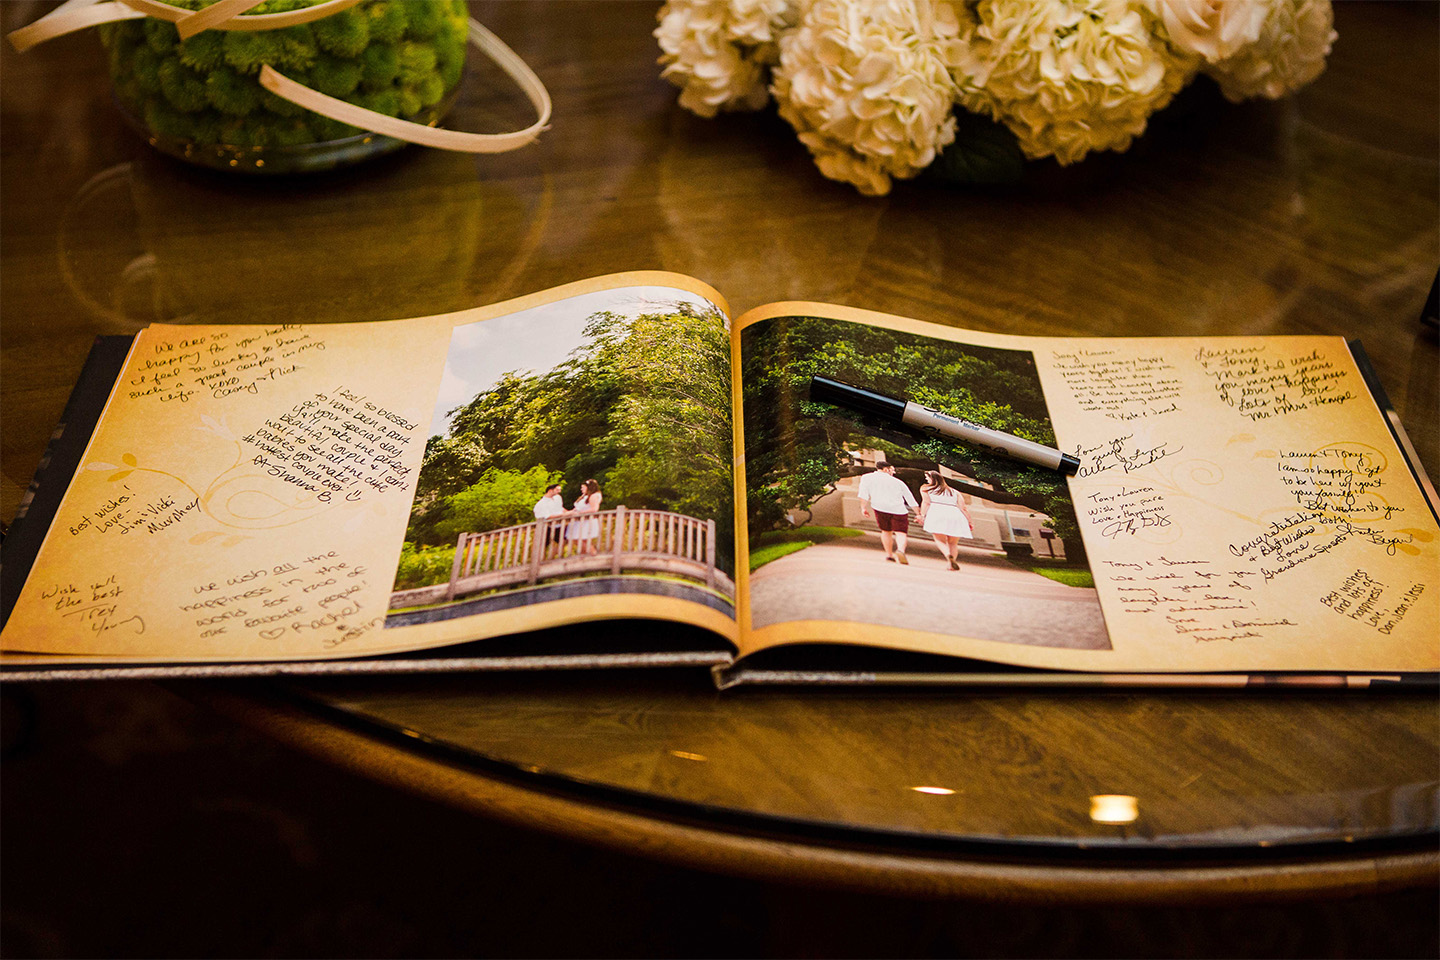 We are so
happy for you both,
I feel so lucky to have
such a great couple in my
life. xoxo
Casey + Nick
I feel so blessed
to have been a part
of your special day.
Y'all make the perfect
beautiful couple & I can't
wait to see all the cute
babies you make!
#hottest couple ever! ☺
Shanna B.
Best wishes!
Love -
Jim & Vicki
Murphey
Wish y'all
the best
Trey
Young
We wish all the
happiness in the
world for two of
our favorite people!
♡ Rachel
Justin
Sharpie
Permanent Marker
Tony & Lauren
We wish you many happy
years together!
more laughter
and honesty above
all. Be true to each
and everything else will
work out.
Kate & Jared
Lauren
& Tony,
Mark & I wish
you many years
of love & happiness
Lots of love
Mr. & Mrs. Hengel
Love you
guys
Tony + Lauren
Wish you pure
Love + Happiness
Lauren & Tony -
I am so happy I get
to be here w/ you &
your family!
Best wishes to you
both,
Congratulations
& Best Wishes
Love
Grandma
Tony & Lauren
We wish for you
many years of
laughter, love,
and adventure!
Love
Best wishes
and lots of
happiness!
Love,
Dan, Jean & Jessi